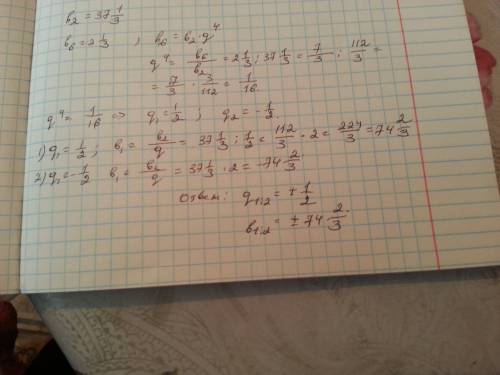 b₂ = 37 1/3
b₆ = 2 1/3 , b₆ = b₂·q⁴
q⁴ = b₆/b₂ = 2 1/3 : 37 1/3 = 7/3 : 112/3 =
= 7/3 · 3/112 = 1/16.
q⁴ = 1/16 => q₁ = 1/2 ; q₂ = -1/2.
1) q₁ = 1/2 ; b₁ = b₂/q = 37 1/3 : 1/2 = 112/3 · 2 = 224/3 = 74 2/3
2) q₂ = -1/2 b₁ = b₂/q = 37 1/3 · 2 = -74 2/3
Ответ: q₁,₂ = ± 1/2
b₁,₂ = ± 74 2/3.